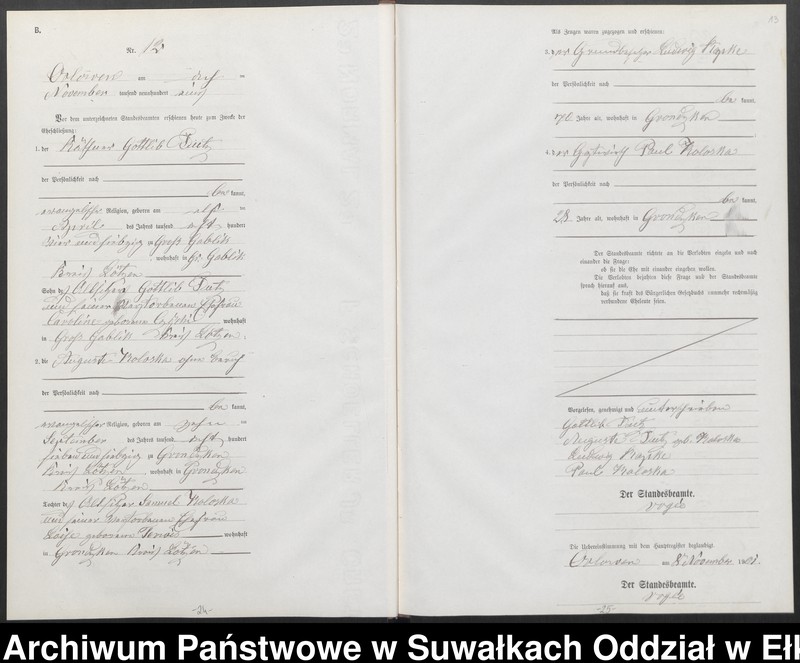 B.
Nr. 12
Orlowen am acht ten
November tausend neunhundert eins
Vor dem unterzeichneten Standesbeamten erschienen heute zum Zwecke der
Eheschließung:
1. der Käthner Gottlieb
der Persönlichkeit nach
be kannt,
evangelischer Religion, geboren am elf ten
April des Jahres tausend acht hundert
vier und siebzig in Groß Gablick
, wohnhaft in Gr. Gablick
Kreis Lötzen
Sohn des Altsitzer Gottlieb
und seiner verstorbenen Ehefrau
Caroline geborenen wohnhaft
in Groß Gablick Kreis Lötzen.
2. die Auguste Koloska ohne Beruf
der Persönlichkeit nach
be kannt,
evangelischer Religion, geboren am zehn ten
September des Jahres tausend acht hundert
sieben und siebzig in Grondzken
Kreis Lötzen, wohnhaft in Grondzken
Kreis Lötzen
Tochter des Altsitzer Samuel Koloska
und seiner verstorbenen Ehefrau
geborenen wohnhaft
in Grondzken Kreis Lötzen
-24-
13
Als Zeugen waren zugezogen und erschienen:
3. der Grundbesitzer Ludwig
der Persönlichkeit nach
be kannt,
Jahre alt, wohnhaft in Grondzken
4. der Gastwirth Paul Koloska
der Persönlichkeit nach
be kannt,
28 Jahre alt, wohnhaft in Grondzken
Der Standesbeamte richtete an die Verlobten einzeln und nach
einander die Frage:
ob sie die Ehe mit einander eingehen wollen.
Die Verlobten bejahten diese Frage und der Standesbeamte
sprach hierauf aus,
daß sie kraft des Bürgerlichen Gesetzbuchs nunmehr rechtmäßig
verbundene Eheleute seien.
Vorgelesen, genehmigt und unterschrieben
Gottlieb
Auguste geb. Koloska
Ludwig
Paul Koloska
Der Standesbeamte.
Die Uebereinstimmung mit dem Hauptregister beglaubigt
Orlowen am 8 November 1901.
Der Standesbeamte.
-25-
Archiwum Państwowe w Suwałkach Oddział w Ełk